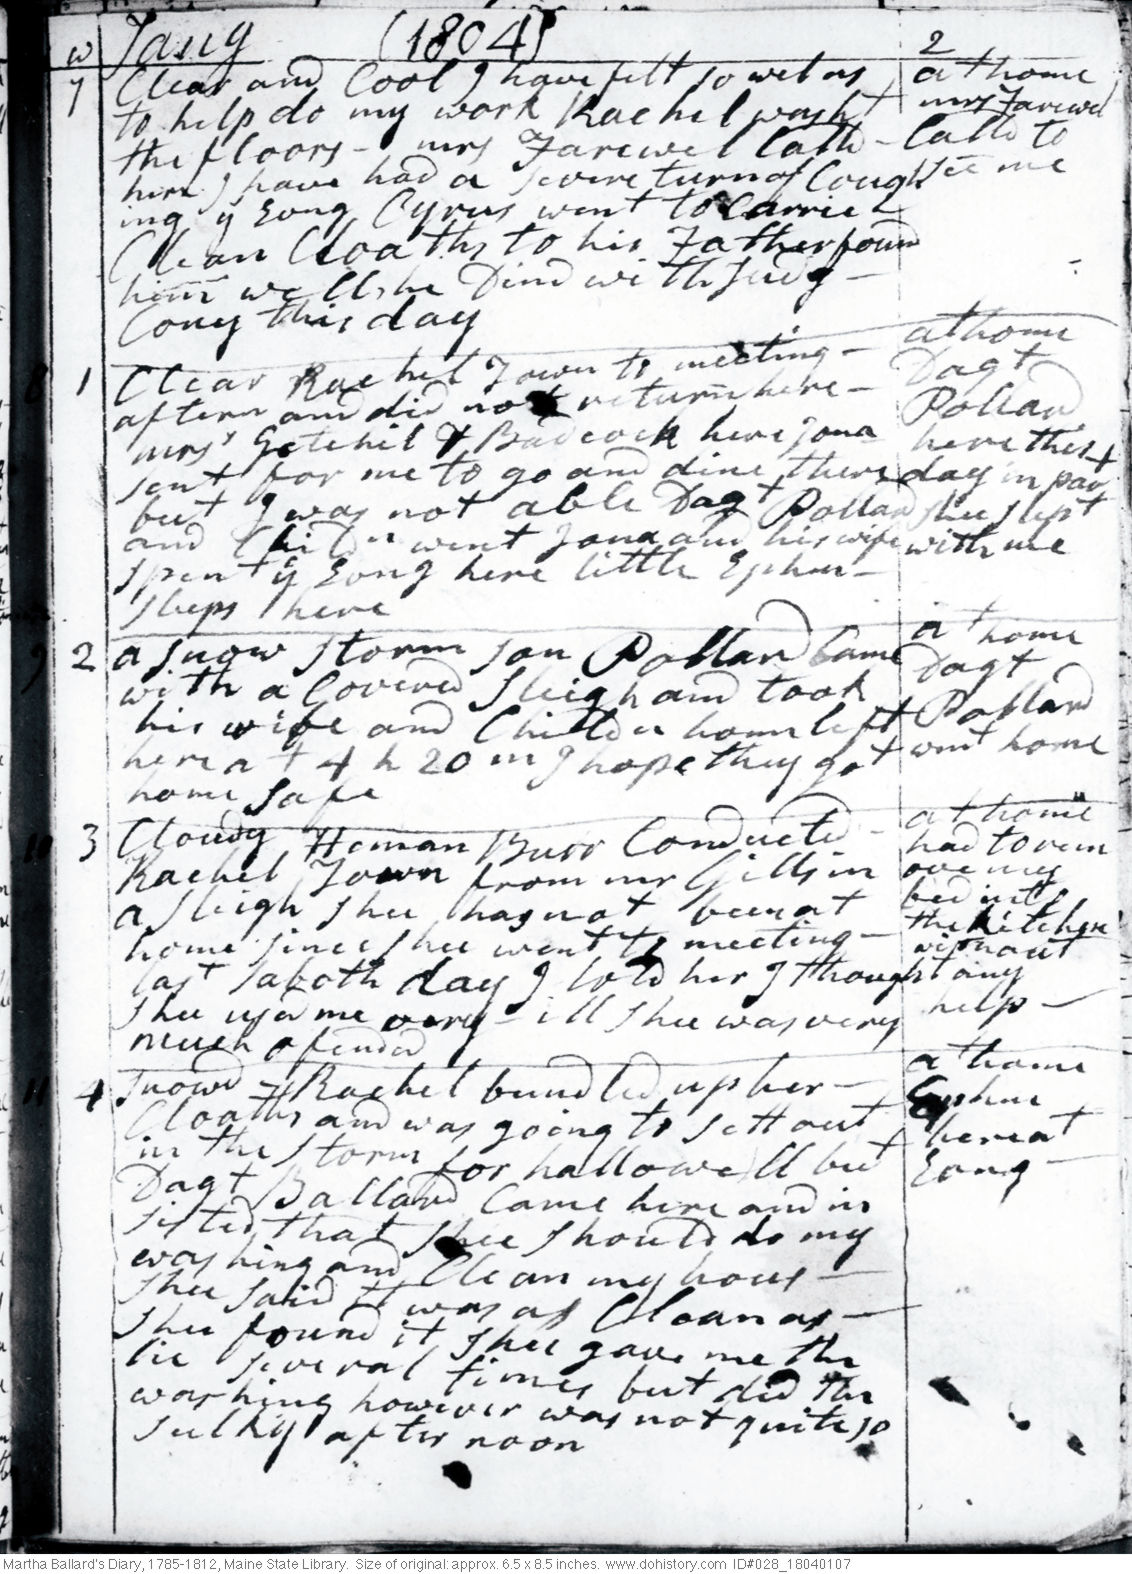 w Jany (1804) 2
7 Clear and Cool I have felt so wel as
to help do my work Rachel washt
the floors - mrs Farewel Calld -
here I have had a severe turn of Cough
ing ÿ Eong Cyrus went to Carrie
Clean Cloaths to his Father found
him well, he Dind with Judg -
Cony this day
at home
mrs Farewel
Calld to
see me
8 1 Clear Rachel Town to meeting -
aftern and did not return here -
mrs Getchel & Badcock here Jona
sent for me to go and dine there
but I was not able Dagt Pollard
and Childn went Jona and his wife
spent ÿ Eong here little Ephm -
sleeps here
at home
Dagt
Pollard
here this
day in par
shee slept
with me
9 2 a snow storm son Pollard Came
with a Covered sleigh and took
his wife and Childn home left
here at 4 h 20 m I hope they got
home safe
at home
Dagt
Pollard
went home
10 3 Cloudy Heman Burr Conducted -
Rachel Town from mr Gills in
a sleigh shee has not been at
home since shee went to meeting -
last Saboth day I told her I thought
shee usd me very - ill shee was very
much ofended
at home
had to rem
ove my
bed into
the kitchen
without
any
help -
11 4 snowd - Rachel bundled up her -
Cloaths and was going to sett out
in the storm for hallowell but
Dagt Ballard Came here and in
sisted that shee should do my
washing and Clean my hous -
shee said it was as Clean as -
shee found it shee gave me the
lie several times but did the
washing however was not quite so
sulky after noon
at home
Ephm
here at
Eong -
Martha Ballard's Diary, 1785-1812, Maine State Library. Size of original: approx. 6.5 x 8.5 inches. www.dohistory.com ID#028_18040107